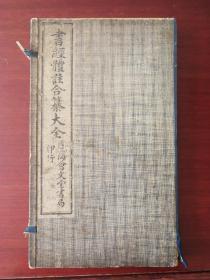 書經體註合纂大全
上海會文堂書局
印行